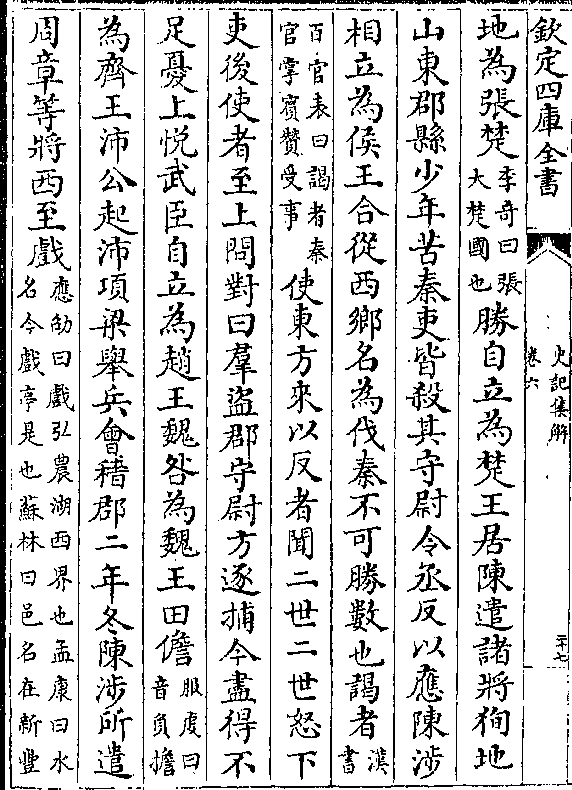 欽定四庫全書
史記集解
卷六
二十七
地為張楚李奇曰張大楚國也勝自立為楚王居陳遣諸將徇地
山東郡縣少年苦秦吏皆殺其守尉令丞反以應陳涉
相立為侯王合從西鄉名為伐秦不可勝數也謁者漢書
百官表曰謁者秦官掌賓贊受事使東方來以反者聞二世二世怒下
吏後使者至上問對曰羣盜郡守尉方逐捕今盡得不
足憂上悅武臣自立為趙王魏咎為魏王田儋服虔曰音負擔
為齊王沛公起沛項梁舉兵會稽郡二年冬陳涉所遣
周章等將西至戲應劭曰戲弘農湖西界也孟康曰水名今戲亭是也蘇林曰邑名在新豐